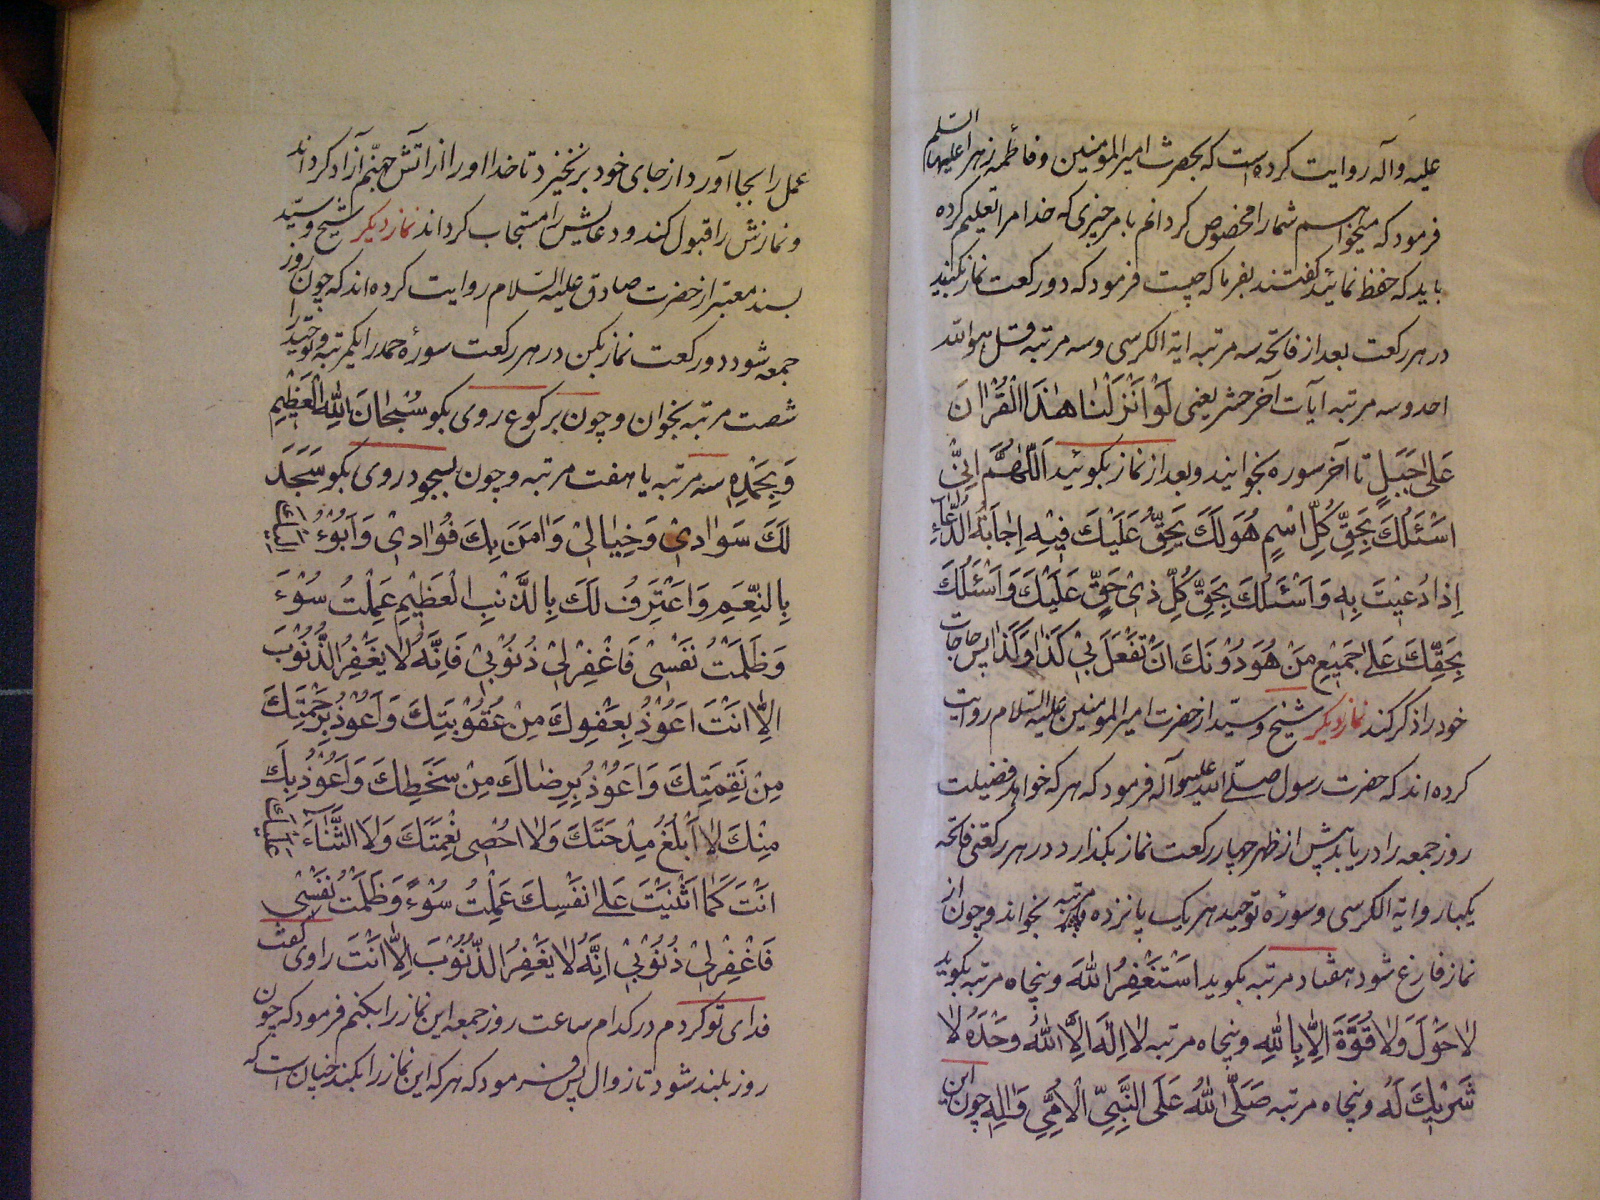 علیه وآله روایت کرده است که بحضرت امیرالمومنین وفاطمه زهرا علیهما السّلم
فرمود که میخواهم شمارا مخصوص کردانم بامر چیزی که خدا مرا تعلیم کرده
باید که حفظ نمائید کفتند بفرما که چیست فرمود که دو رکعت نماز بکنید
در هر رکعت بعد از فاتحه سه مرتبه ایة الکرسی وسه مرتبه قل هو الله
احد وسه مرتبه آیات آخر حشر یعنی لَوْ اَنْزَلْنٰا هٰذَا الْقُرْانَ
عَلیٰ جَبَلٍ تا آخر سوره بخوانید وبعد از نماز بکوئید اَللّٰهُمَّ اِنّیْ
اَسْئَلُكَ بِحَقِّ کُلِّ اسْمٍ هُوَ لَكَ یَحِقُّ عَلَیْكَ فِیْهِ اِجٰابَةُ الدُّعٰاءِ
اِذٰا دُعِیْتَ بِهِ وَ اَسْئَلُكَ بِحَقِّ کُلِّ ذِیْ حَقٍّ عَلَیْكَ وَ اَسْئَلُكَ
بِحَقِّكَ عَلیٰ جَمِیْعِ مَنْ هُوَ دُوْنَكَ اَنْ تَفْعَلَ بِیْ کَذٰا وَکَذٰا پس حاجات
خود را ذکر کند نماز دیکر شیخ وسیّد از حضرت امیرالمومنین علیه السّلام روایت
کرده اند که حضرت رسول صلّی الله علیه وآله فرمود که هر که خواهد فضیلت
روز جمعه را دریابد پیش از ظهر چهار رکعت نماز بکذارد در هر رکعتی فاتحه
یکبار وایة الکرسی وسورهٔ توحید هر یک پانزده مرتبه بخواند وچون از
نماز فارغ شود هفتاد مرتبه بکوید اَسْتَغْفِرُ اللهَ وپنجاه مرتبه بکوید
لٰا حَوْلَ وَلٰا قُوَّةَ اِلّٰا بِاللهِ وپنجاه مرتبه لٰا اِلٰهَ اِلَّا اللهُ وَحْدَهُ لٰا
شَرِیْكَ لَهُ وپنجاه مرتبه صَلَّی اللهُ عَلَی النَّبِیِّ الْاُمِّیِ وَاٰلِهِ چون این
عمل را بجا آورد از جای خود برنخیزد تا خدا او را از آتش جهنّم آزاد کرداند
ونمازش را قبول کند ودعایش را مستجاب کرداند نماز دیکر شیخ وسیّد
بسند معتبر از حضرت صادق علیه السّلام روایت کرده اند که چون روز
جمعه شود دو رکعت نماز بکن در هر رکعت سورهٔ حمد را یکمرتبه وتوحید را
شصت مرتبه بخوان وچون برکوع روی بکو سُبْحٰانَ اللهِ الْعَظِیْمِ
وَ بِحَمْدِهِ سه مرتبه یا هفت مرتبه وچون بسجود روی بکو سَجَدَ
لَكَ سَوٰادِیْ وَ خِیٰالِیْ وَ اٰمَنَ بِكَ فُوٰادِیْ وَ اَبُوْءُ اِلَیْكَ
بِالنِّعَمِ وَ اَعْتَرِفُ لَكَ بِالذَّنْبِ الْعَظِیْمِ عَمِلْتُ سُوْءً
وَ ظَلَمْتُ نَفْسِیْ فَاغْفِرْلِیْ ذُنُوْبِیْ فَاِنَّهُ لٰا یَغْفِرُ الذُّنُوْبَ
اِلّٰا اَنْتَ اَعُوْذُ بِعَفْوِكَ مِنْ عَقُوْبَتِكَ وَ اَعُوْذُ بِرَحْمَتِكَ
مِنْ نَقِمَتِكَ وَ اَعُوْذُ بِرِضٰاكَ مِنْ سَخَطِكَ وَ اَعُوْذُ بِكَ
مِنْكَ لٰا اَبْلَغُ مِدْحَتَكَ وَ لٰا اُحْصِی نِعْمَتَكَ وَ لَا الثَّنٰاءَ عَلَیْكَ
اَنْتَ کَمٰا اَثْنَیْتَ عَلیٰ نَفْسِكَ عَمِلْتُ سُوْءً وَ ظَلَمْتُ نَفْسِیْ
فَاغْفِرْلِیْ ذُنُوْبِیْ اِنَّهُ لٰا یَغْفِرُ الذُّنُوْبَ اِلّٰا اَنْتَ راوی کفت
فدای تو کردم در کدام ساعت روز جمعه این نماز را بکنم فرمود که چون
روز بلند شود تا زوال پس فرمود که هر که این نماز را بکند چنان است که